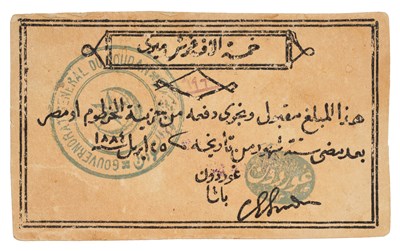 خمسة الاف قرش اميري
هذا المبلغ مقبول ويجرى دفعه من خزينة الخرطوم او مصر
بعد مضى ستة شهور من تاريخه ٢٥ ابريل ١٨٨٤
غوردون
باشا
GOUVERNORAT GENERAL DU SOUDAN